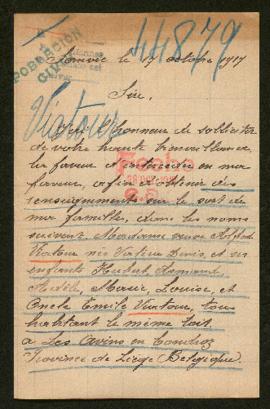 44879
POBLACIÓN
CIVIL
le 17 octobre 1917
Sire,
Viatour
J'ai l'honneur de solliciter
de votre haute bienveillance
la faveur d'intercéder en ma
faveur, afin d'obtenir des
renseignements sur le sort de
ma famille, dont les noms
suivent. Madame veuve Alfred
Viatour née Valérie Davin, et ses
enfants Hubert, Armand,
Adèle, Marie, Louise, et
Oncle Emile Viatour, tous
habitant le même toit
à Les Avins en Condroz
Province de Liège (Belgique).
Fecho